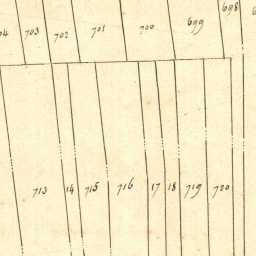 703 702 701 700 699 698
713 14 715 716 17 18 719 720